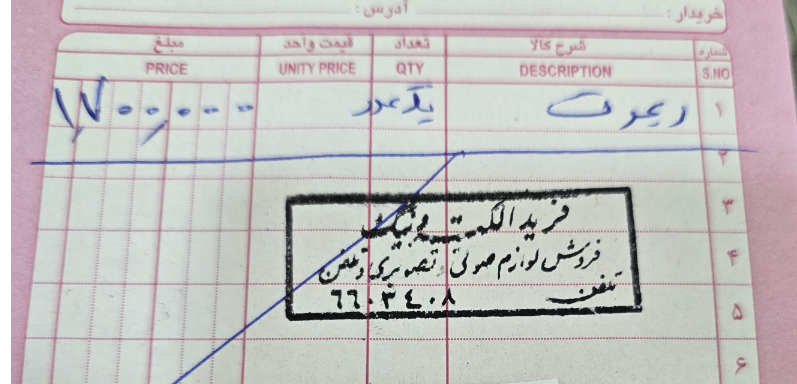 خریدار : آدرس :
شماره شرح کالا تعداد قیمت واحد مبلغ
S.NO DESCRIPTION QTY UNITY PRICE PRICE
۱ ریموت یک عدد ۱,۷۰۰,۰۰۰
۲
۳
فرید الکترونیک
۴
فروش لوازم صوتی تصویری و تلفن
تلفن ٦٦٠٣٤٠٨
۵
۶